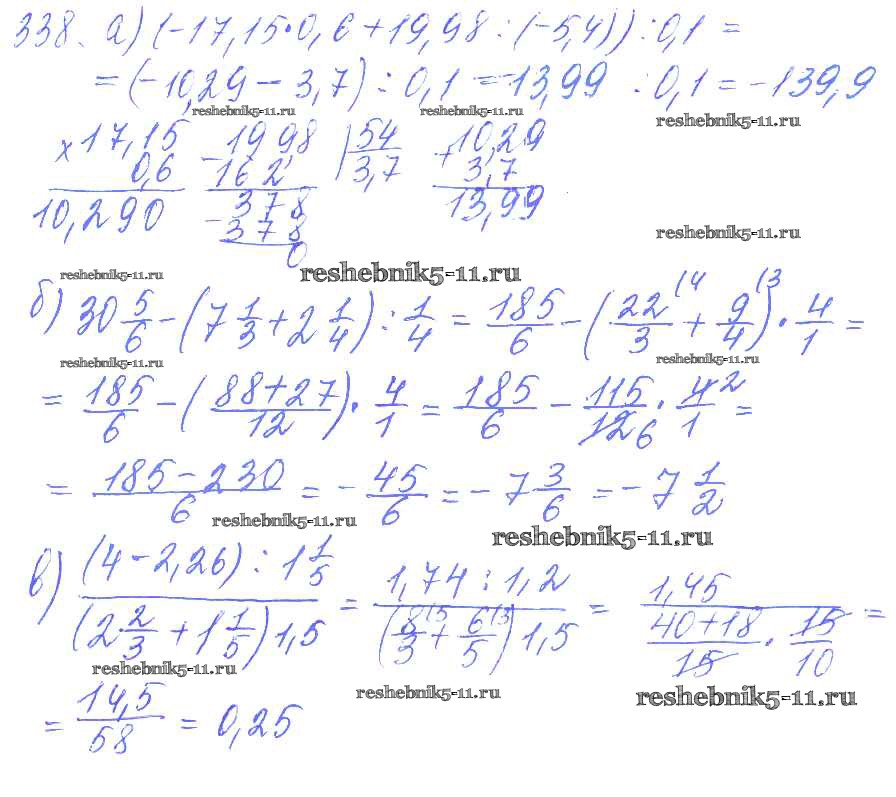 338. а) (-17,15·0,6+19,98:(-5,4)):0,1=
=(-10,29-3,7):0,1=-13,99 :0,1=-139,9
reshebnik5-11.ru reshebnik5-11.ru reshebnik5-11.ru
×17,15 -1998 |54 +10,29
0,6 162 3,7 3,7
10,290 -378 13,99
378 reshebnik5-11.ru
0
reshebnik5-11.ru reshebnik5-11.ru
б) 30 5/6-(7 1/3+2 1/4):1/4=185/6-(22/3(4+9/4(3)·4/1=
reshebnik5-11.ru reshebnik5-11.ru
=185/6-((88+27)/12)·4/1=185/6-115/12 6·4 2/1=
=(185-230)/6=-45/6=-7 3/6=-7 1/2
reshebnik5-11.ru reshebnik5-11.ru
в) (4-2,26):1 1/5 / (2 2/3+1 1/5)1,5 = 1,74:1,2 / (8/3(5+6/5(3)1,5 = 1,45 / (40+18)/15·15/10 =
reshebnik5-11.ru reshebnik5-11.ru reshebnik5-11.ru
=14,5/58=0,25